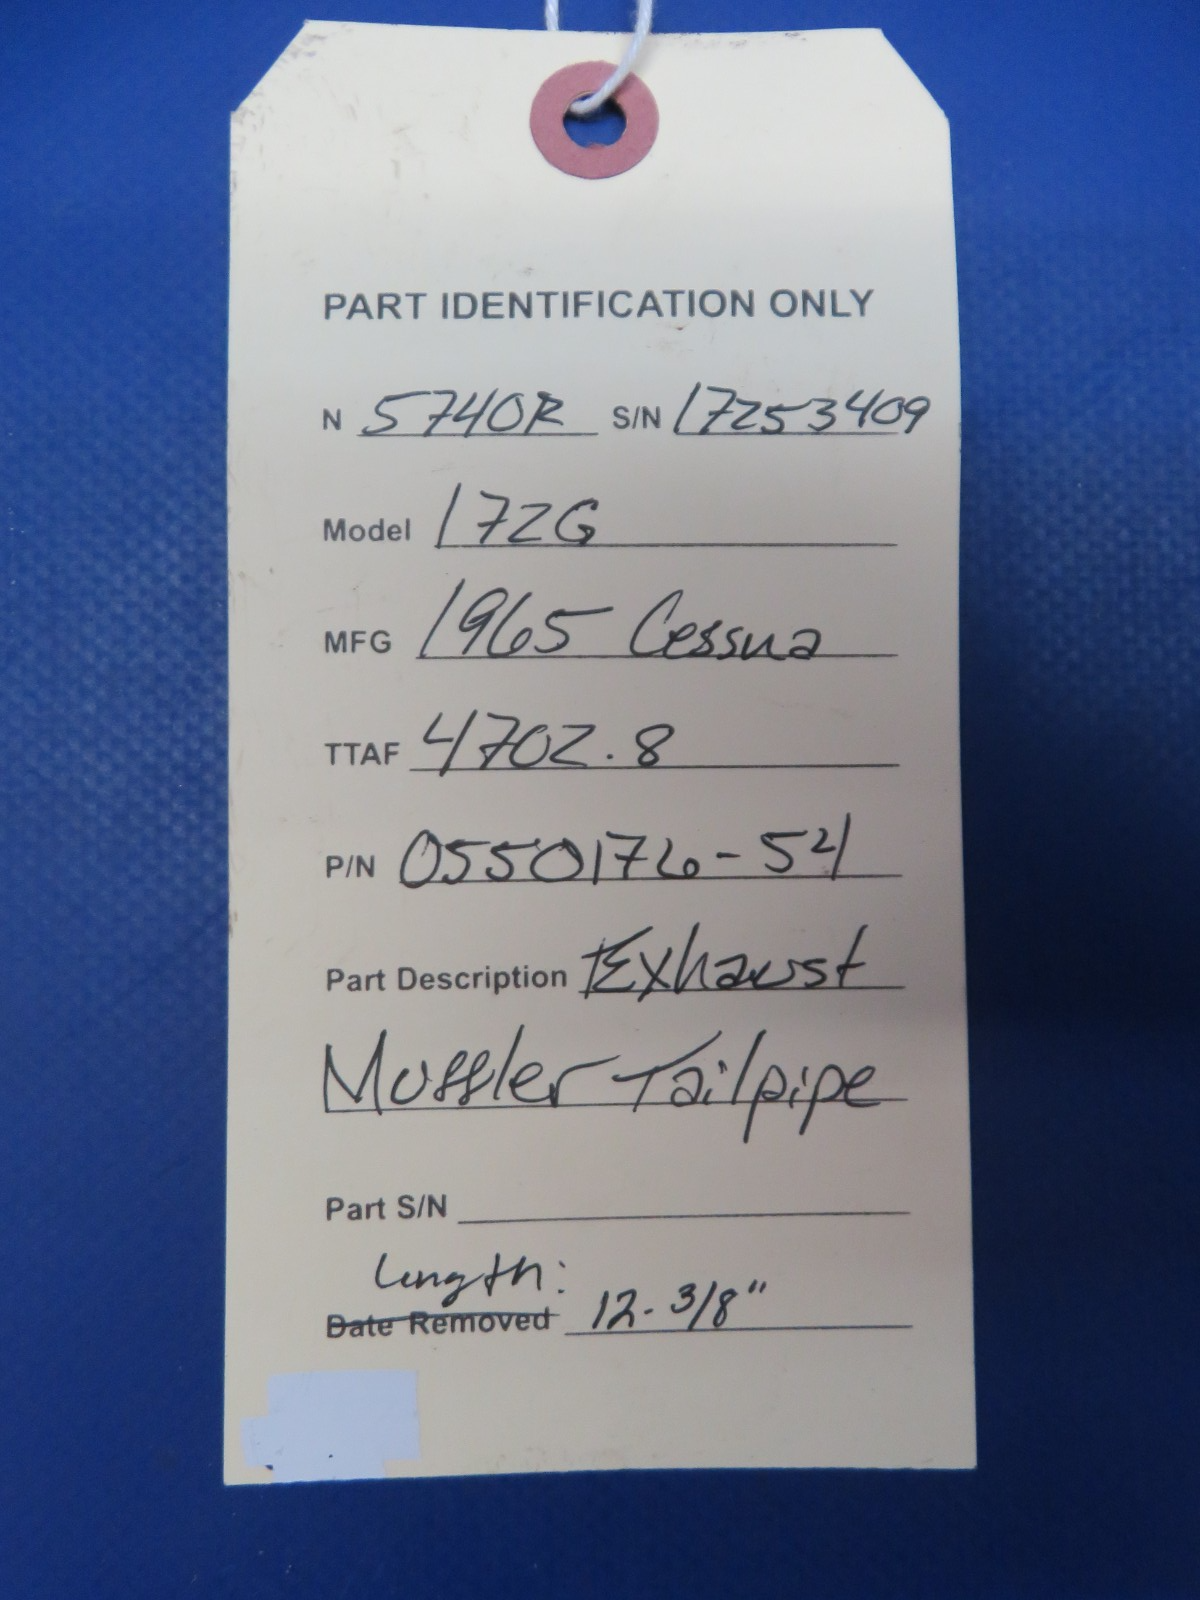 PART IDENTIFICATION ONLY
N 5740R S/N 17253409
Model 172G
MFG 1965 Cessna
TTAF 4702.8
P/N 0550176-54
Part Description Exhaust
Muffler Tailpipe
Part S/N
Length:
Date Removed 12-3/8"